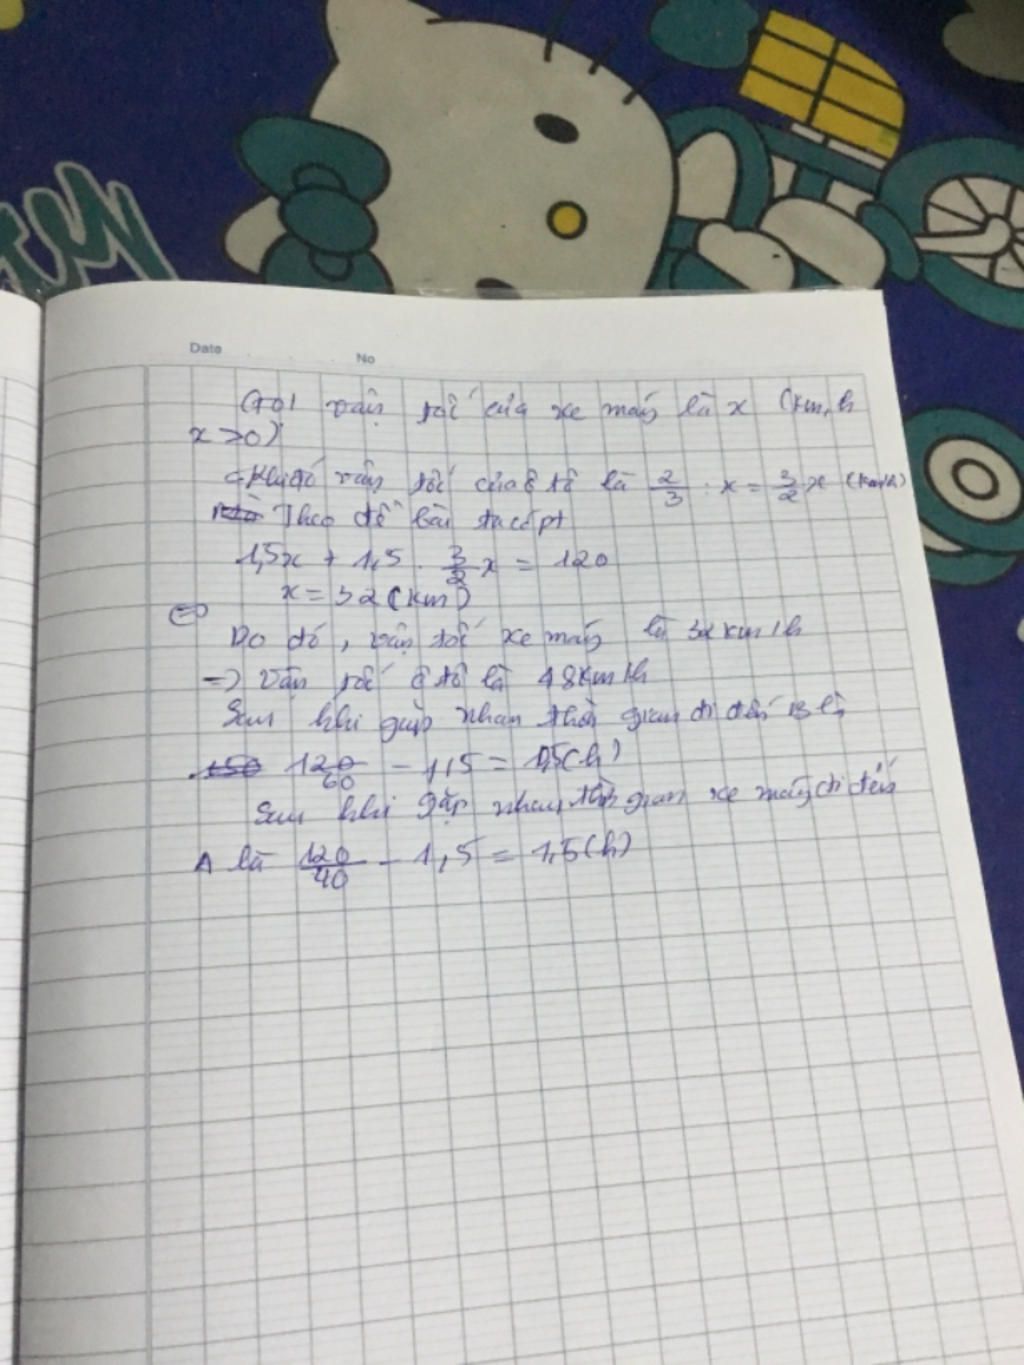 Date No
Gọi vận tốc của xe máy là x (km, h
x >0)
Khi đó vận tốc của ô tô là 2/3 : x = 3/2 x (km/h)
Theo đề bài ta có pt
1,5x + 1,5 . 3/2 x = 120
x = 32 (km)
<=>
Do đó, vận tốc xe máy là 32 km/h
=> Vận tốc ô tô là 48km/h
Sau khi gặp nhau thời gian đi đến B là
120/60 - 1,5 = 0,5(h)
Sau khi gặp nhau, thời gian xe máy đi đến
A là 120/40 - 1,5 = 1,5(h)